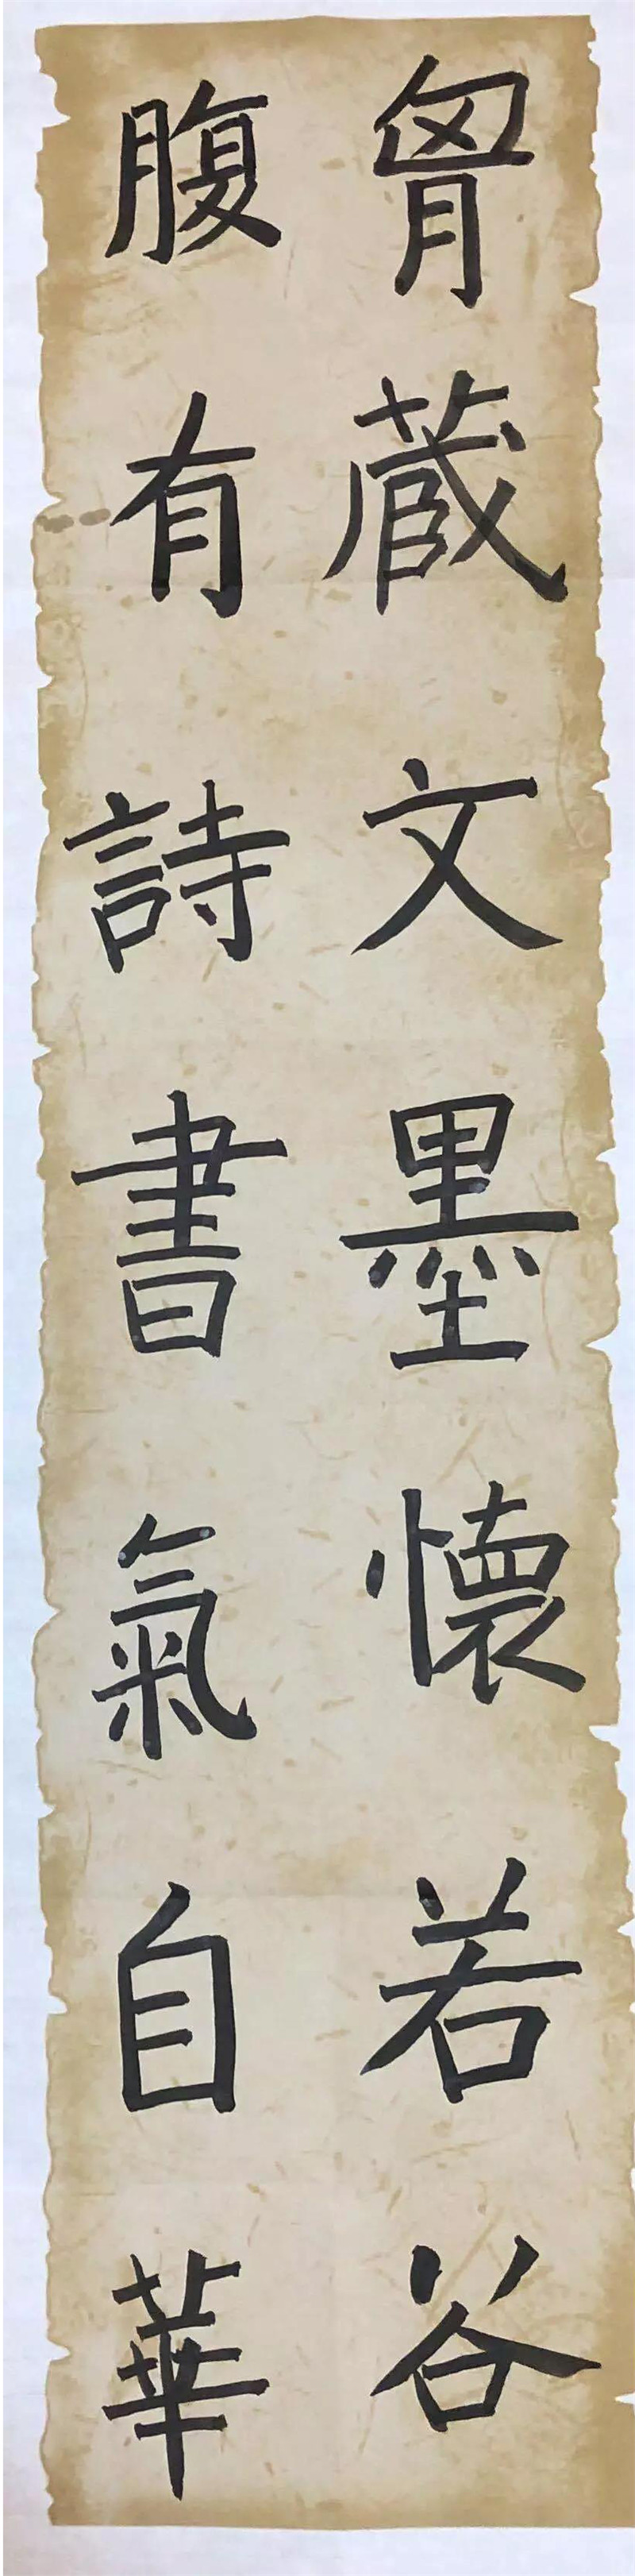 胷藏文墨懷若谷
腹有詩書氣自華